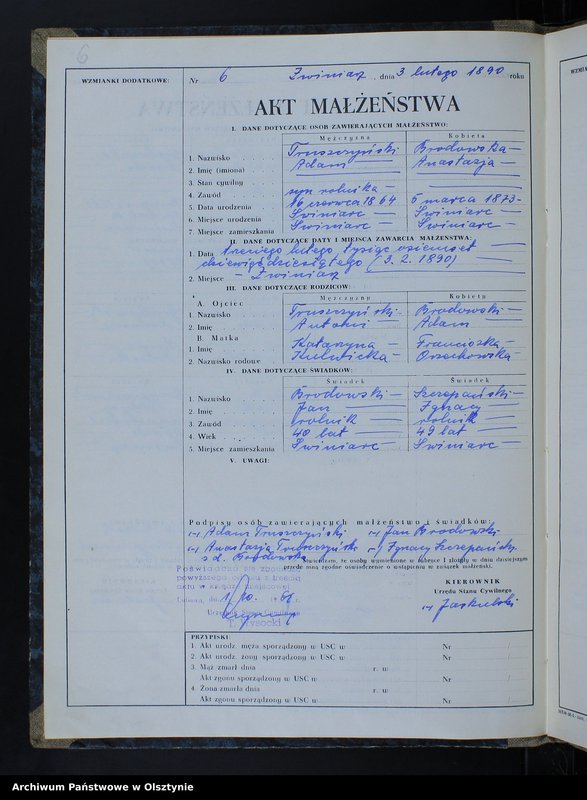 6
WZMIANKI DODATKOWE:
Nr 6 Zwiniarz, dnia 3 lutego 1890 roku
AKT MAŁŻEŃSTWA
I. DANE DOTYCZĄCE OSÓB ZAWIERAJĄCYCH MAŁŻEŃSTWO:
Mężczyzna Kobieta
1. Nazwisko Truszczyński Brodowska
2. Imię (imiona) Adam Anastazja
3. Stan cywilny
4. Zawód syn rolnika
5. Data urodzenia 16 czerwca 1864 5 marca 1873
6. Miejsce urodzenia Swiniarc Swiniarc
7. Miejsce zamieszkania Swiniarc Swiniarc
II. DANE DOTYCZĄCE DATY I MIEJSCA ZAWARCIA MAŁŻEŃSTWA:
1. Data trzeciego lutego tysiąc osiemset
dziewięćdziesiątego (3. 2. 1890)
2. Miejsce - Zwiniarz
III. DANE DOTYCZĄCE RODZICÓW:
Mężczyzny Kobiety
A. Ojciec
1. Nazwisko Truszczyński Brodowski
2. Imię Antoni Adam
B. Matka
1. Imię Katarzyna Franciszka
2. Nazwisko rodowe Orzechowska
IV. DANE DOTYCZĄCE ŚWIADKÓW:
Świadek Świadek
1. Nazwisko Brodowski Szczepański
2. Imię Jan Ignacy
3. Zawód rolnik rolnik
4. Wiek 40 lat 49 lat
5. Miejsce zamieszkania Swiniarc Swiniarc
V. UWAGI:
Podpisy osób zawierających małżeństwo i świadków:
(-) Adam Truszczyński (-) Jan Brodowski
(-) Anastazja Truszczyńska (-) Ignacy Szczepański
z d. Brodowska
Stwierdzam, że osoby wymienione w rubryce I złożyły w dniu dzisiejszym
przede mną zgodne oświadczenie o wstąpieniu w związek małżeński.
Poświadcza się zgodność
powyższego odpisu z treścią
aktu w księdze miejscowej
KIEROWNIK
Urzędu Stanu Cywilnego
(-) Jaskulski
dn. 1/10. 1968 r.
Urzędu Stanu Cywilnego
T. Wysocki
PRZYPISKI
1. Akt urodz. męża sporządzony w USC w Nr /
2. Akt urodz. żony sporządzony w USC w Nr /
3. Mąż zmarł dnia r. w
Akt zgonu sporządzony w USC w Nr /
4. Żona zmarła dnia r. w
Akt zgonu sporządzony w USC w Nr /
Archiwum Państwowe w Olsztynie